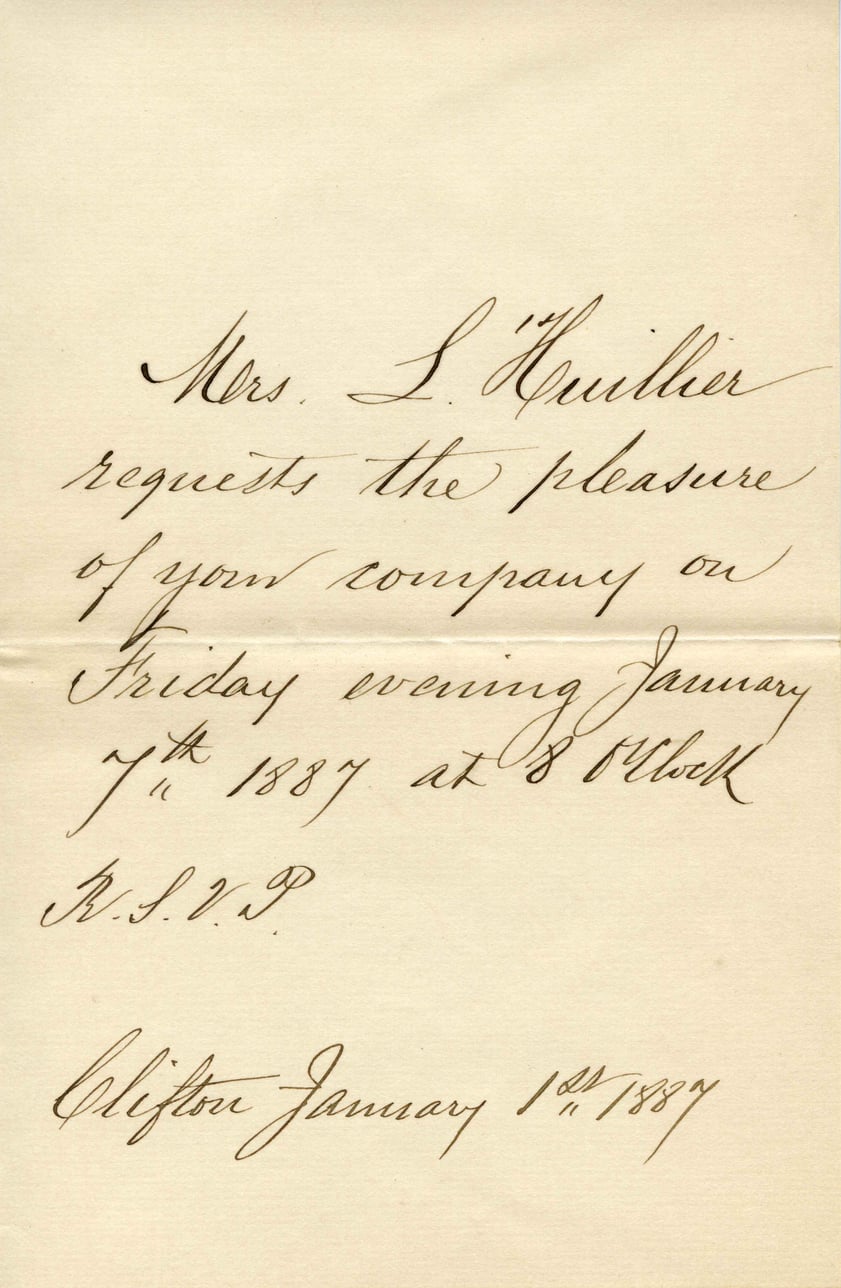 Mrs. L'Huillier
requests the pleasure
of your company on
Friday evening January
7th 1887 at 8 O'Clock
R.S.V.P.
Clifton January 1st 1887